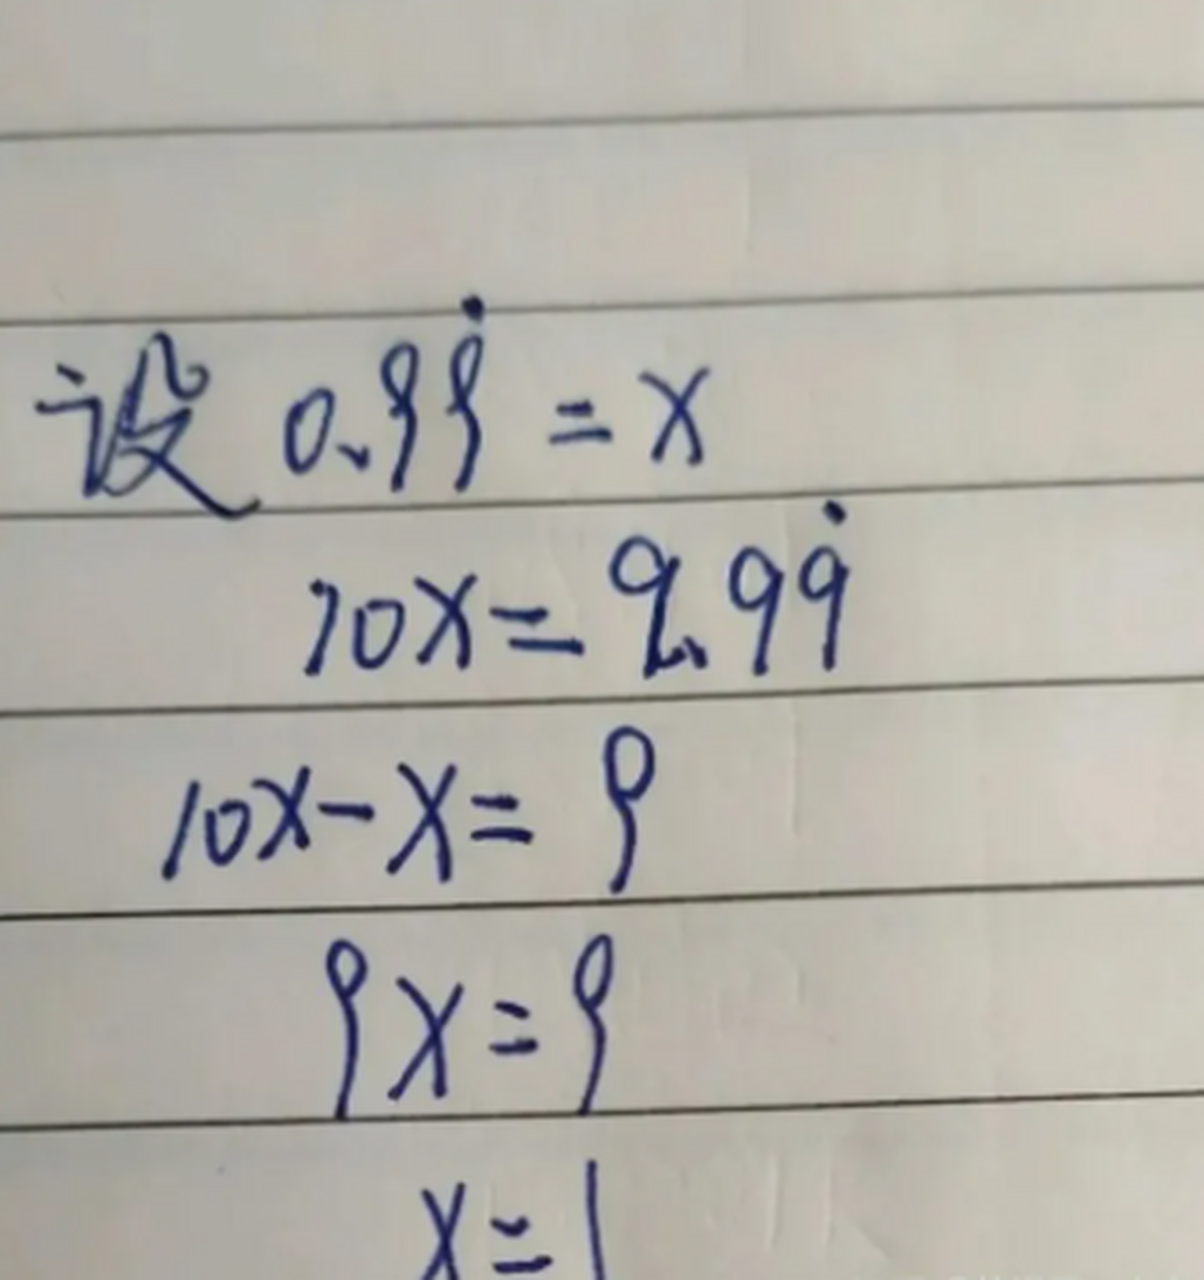 设 0.99̇ = x
10x = 9.99̇
10x - x = 9
9x = 9
x = 1